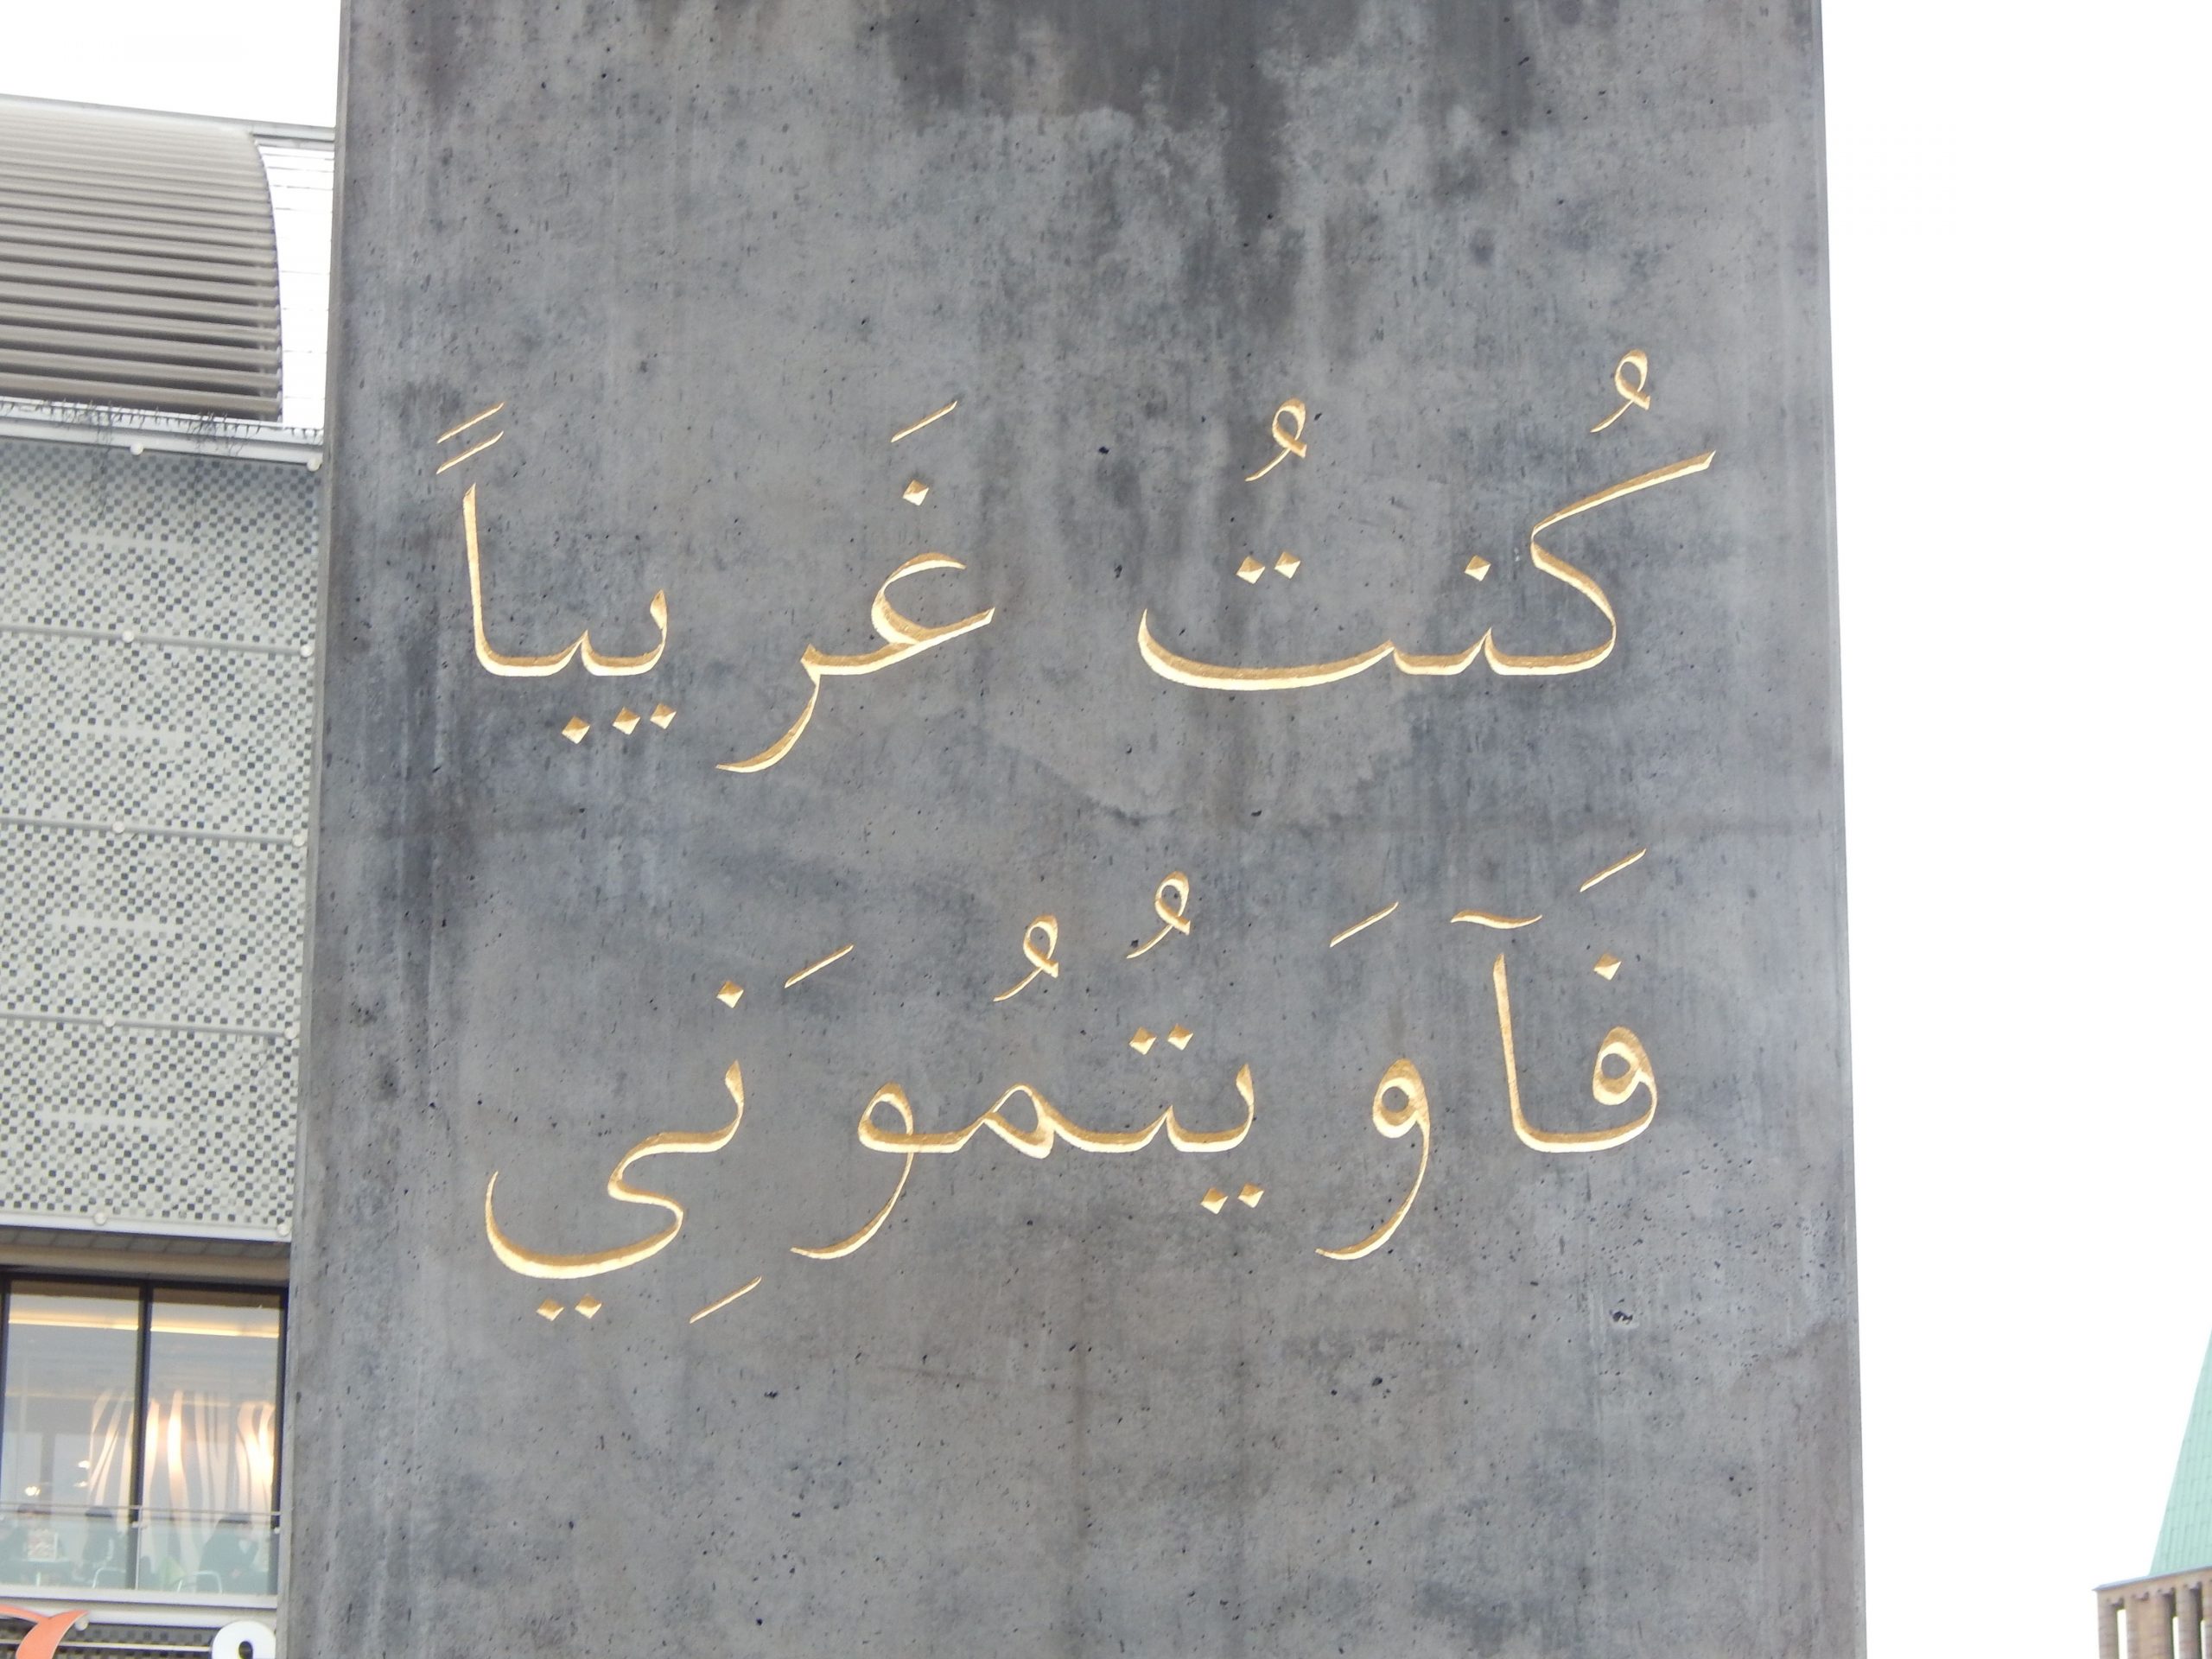 كُنتُ غَريباً
فَآوَيتُمُوَني